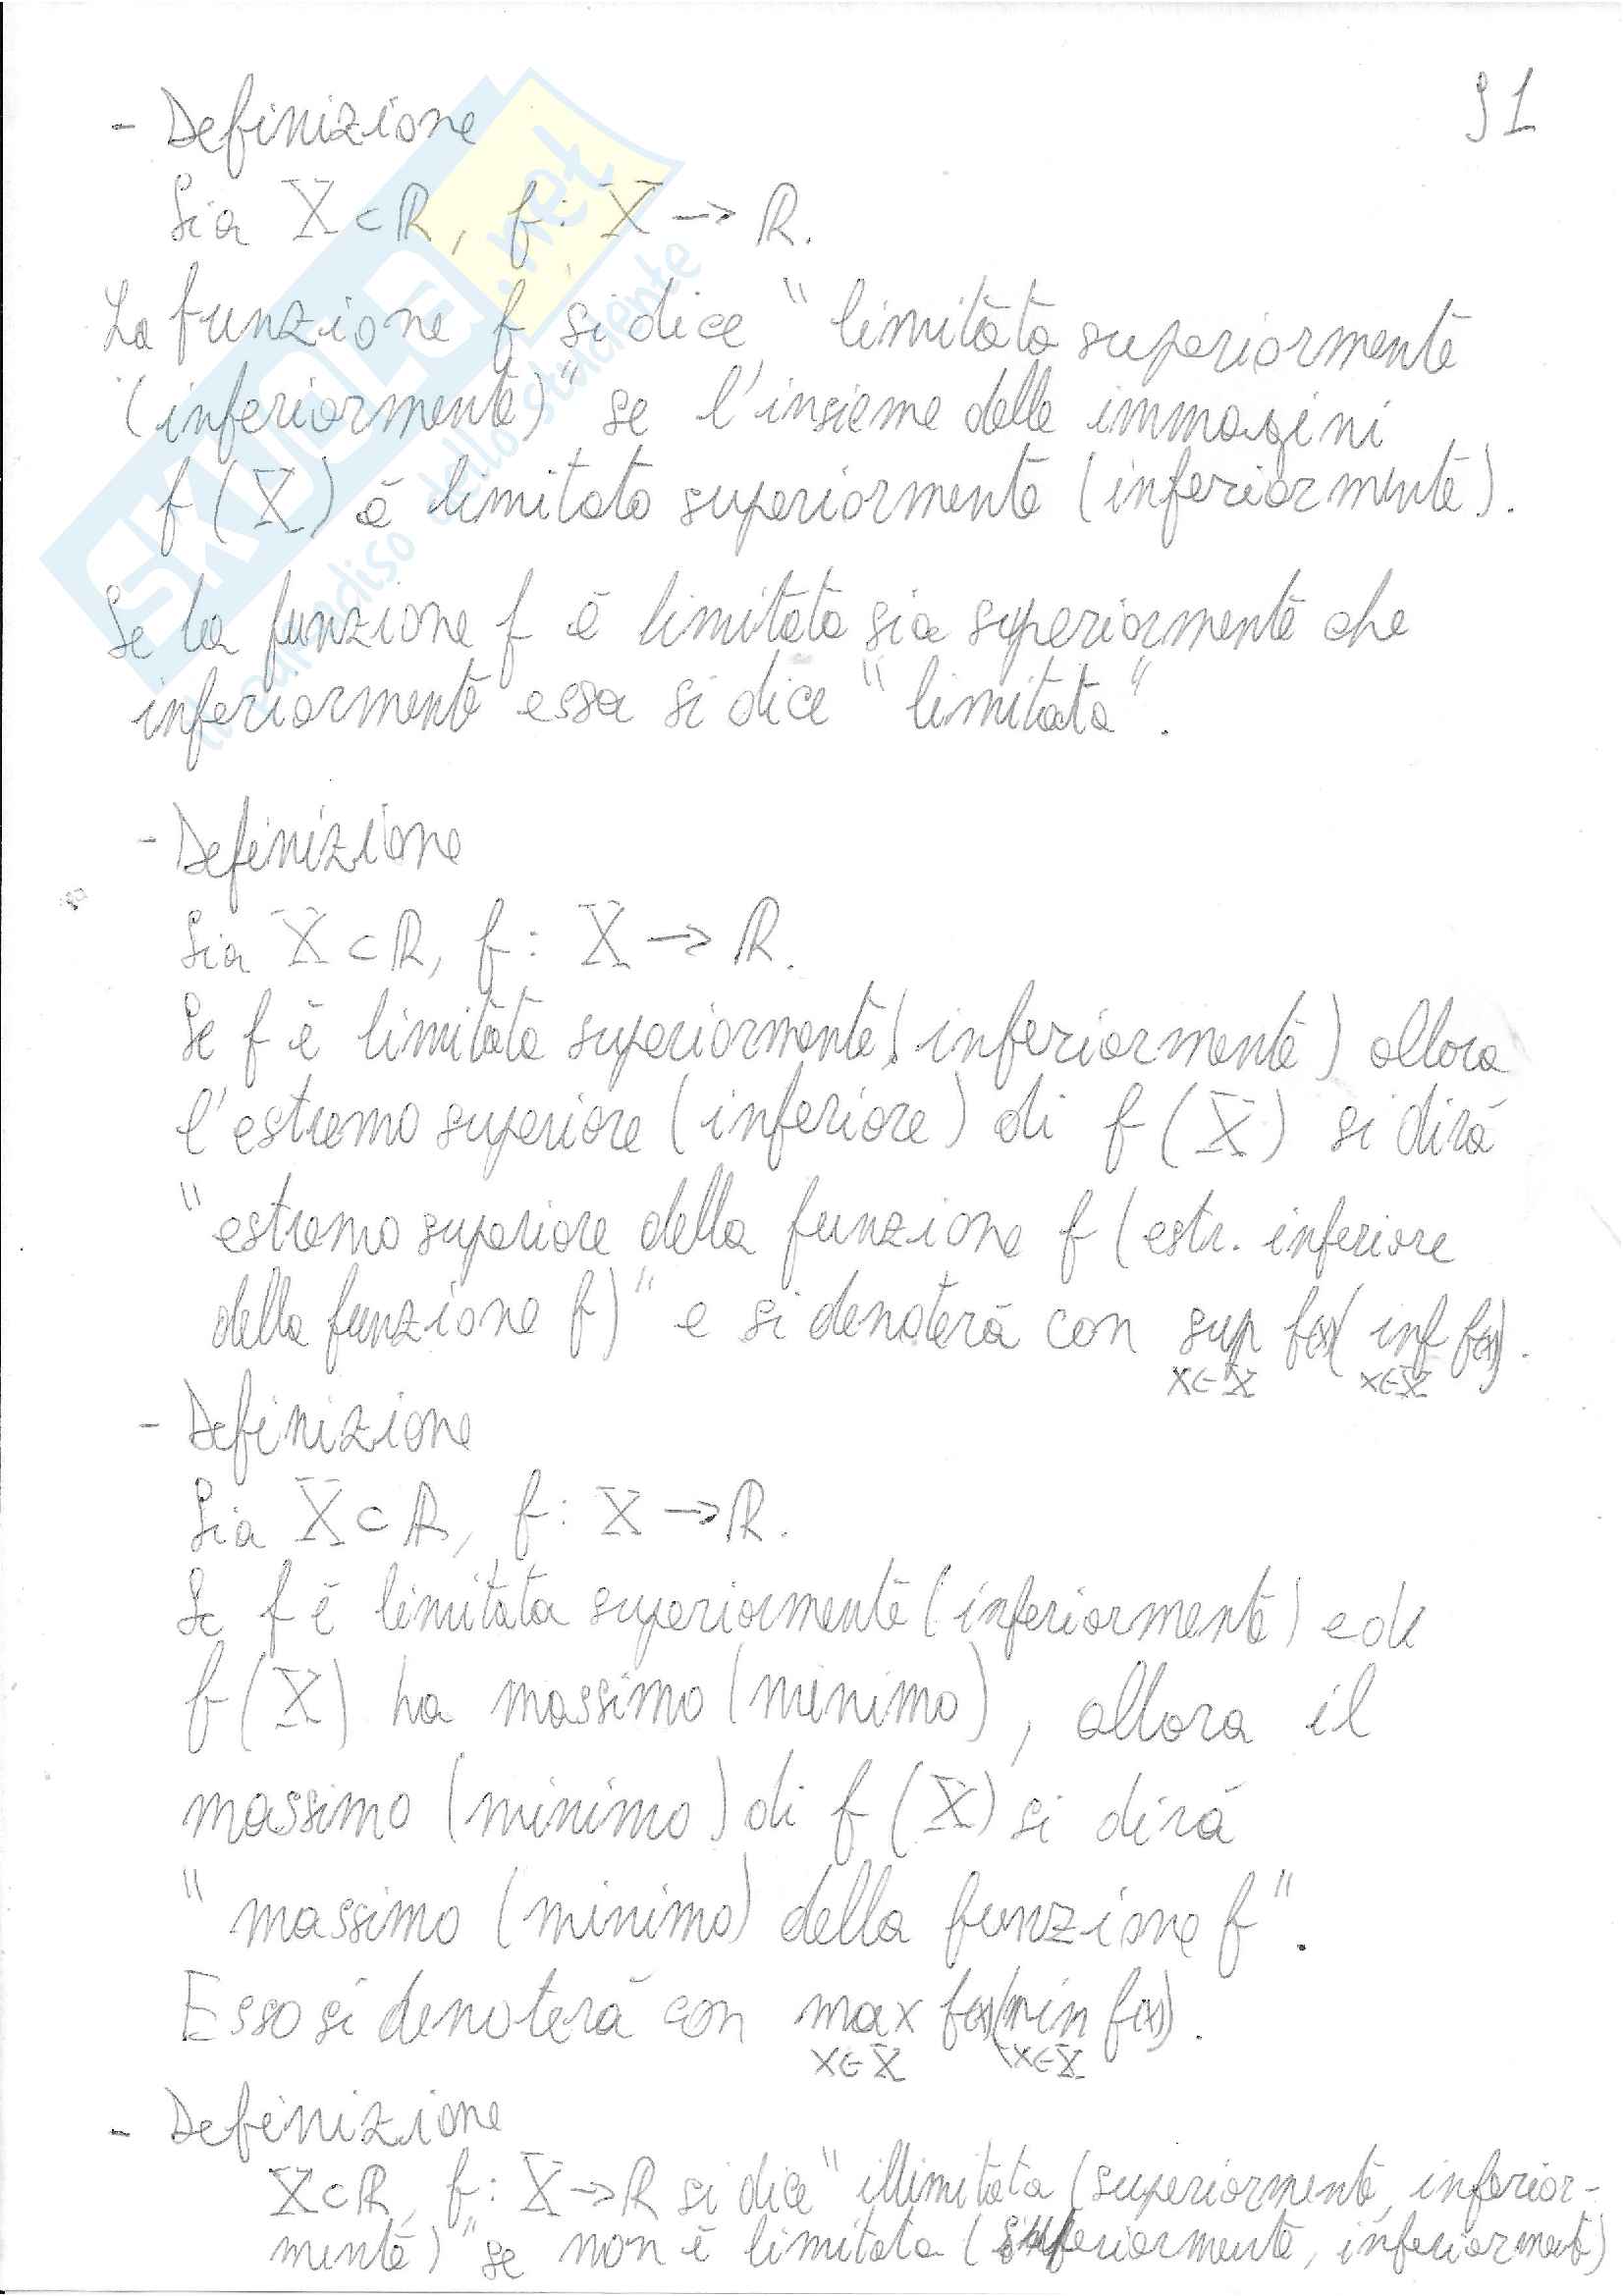 91
- Definizione
Sia X ⊂ ℝ, f: X → ℝ.
La funzione f si dice "limitata superiormente
(inferiormente)" se l'insieme delle immagini
f(X) è limitato superiormente (inferiormente).
Se la funzione f è limitata sia superiormente che
inferiormente essa si dice "limitata".
- Definizione
Sia X ⊂ ℝ, f: X → ℝ.
Se f è limitata superiormente (inferiormente) allora
l'estremo superiore (inferiore) di f(X) si dirà
"estremo superiore della funzione f (estr. inferiore
della funzione f)" e si denoterà con sup f(x) (inf f(x)).
x∈X x∈X
- Definizione
Sia X ⊂ ℝ, f: X → ℝ.
Se f è limitata superiormente (inferiormente) ed
f(X) ha massimo (minimo), allora il
massimo (minimo) di f(X) si dirà
"massimo (minimo) della funzione f".
Esso si denoterà con max f(x) (min f(x)).
x∈X x∈X
- Definizione
X ⊂ ℝ, f: X → ℝ si dice "illimitata (superiormente, inferior-
mente)" se non è limitata (superiormente, inferiorment)
SKUOLA.net
il paradiso dello studente